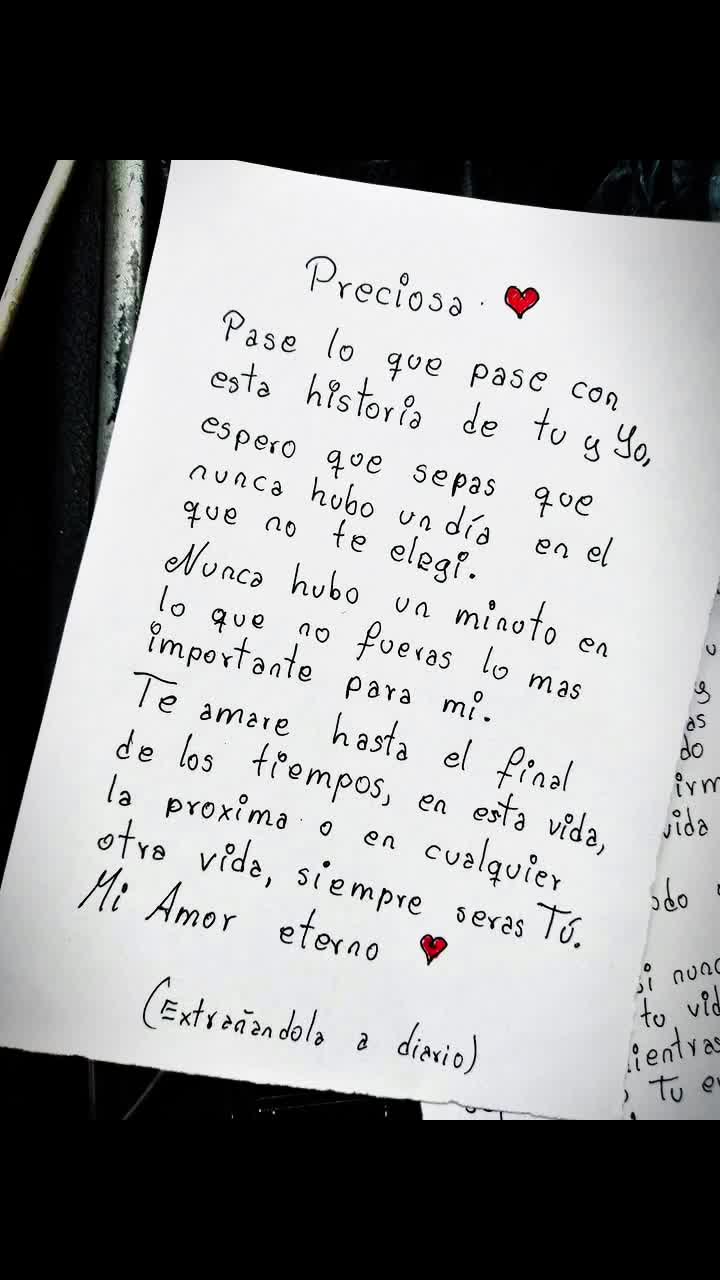 Preciosa.
Pase lo que pase con
esta historia de tu y Yo,
espero que sepas que
nunca hubo un día en el
que no te elegi.
Nunca hubo un minuto en
lo que no fueras lo mas
importante para mi.
Te amare hasta el final
de los tiempos, en esta vida,
la proxima o en cualquier
otra vida, siempre seras Tú.
Mi Amor eterno
(Extrañandola a diario)
y
as
do
irm
vida
odo
si nunc
tu vid
ientras
Tu en